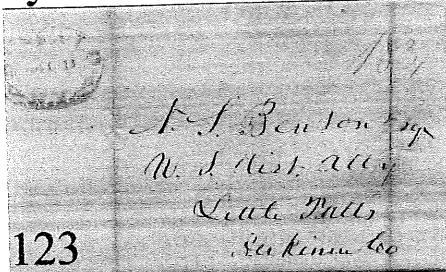 N. S. Benton Esqr
U. S. Dist. Atty
Little Falls
Herkimer Co
123